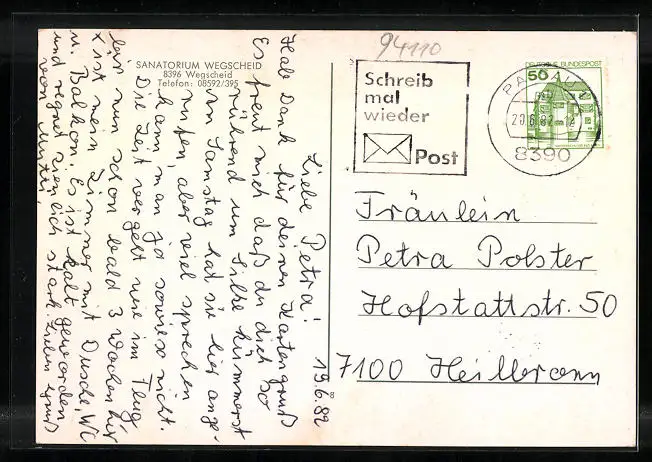 94110
SANATORIUM WEGSCHEID
8396 Wegscheid
Telefon: 08592/395
Schreib
mal
wieder
Post
DEUTSCHE BUNDESPOST
50
PASSAU
20.6.82-12
8390
19.6.82
Liebe Petra!
Hab Dank für deinen Kartengruß
Es freut mich daß du dich so
rührend um Silke kümmerst
am Samstag hat sie hier ange-
rufen, aber viel sprechen
kann man ja sowieso nicht.
Die Zeit vergeht wie im Flug
bin nun schon bald 3 Wochen hir
ist mein Zimmer mit Dusche, WC
u. Balkon. Es ist kalt geworden
und regnet ziemlich stark. Lieben Gruß
von Mutti,
Fräulein
Petra Polster
Hofstattstr. 50
7100 Heilbronn